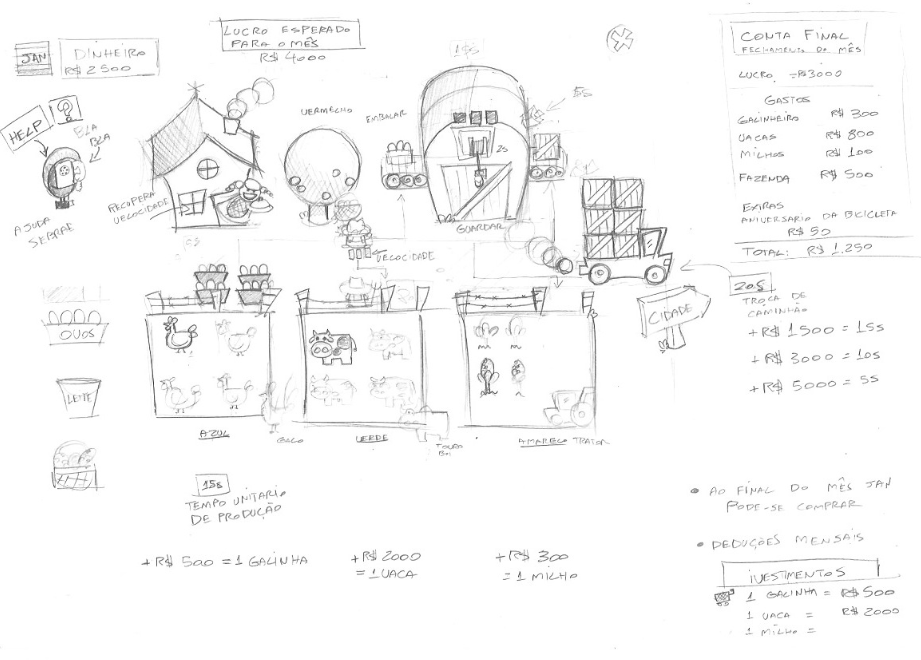 JAN
DINHEIRO
R$ 2500
LUCRO ESPERADO
PARA O MÊS
R$ 4000
15s
5s
CONTA FINAL
FECHAMENTO DO MÊS
LUCRO = R$ 3000
GASTOS
GALINHEIRO R$ 300
VACAS R$ 800
MILHOS R$ 100
FAZENDA R$ 500
EXTRAS
ANIVERSARIO DA BICICLETA
R$ 50
TOTAL: R$ 1.250
HELP
BLA
BLA
AJUDA
SEBRAE
RECUPERA
VELOCIDADE
VERMELHO
EMBALAR
2s
GUARDAR
VELOCIDADE
5s
CIDADE
20s
TROCA DE
CAMINHÃO
+R$ 1500 = 15s
+R$ 3000 = 10s
+R$ 5000 = 5s
OVOS
LEITE
AZUL
GALO
VERDE
TOURO
BOI
AMARELO TRATOR
15s
TEMPO UNITARIO
DE PRODUÇÃO
+R$ 500 = 1 GALINHA
+R$ 2000
= 1 VACA
+R$ 300
= 1 MILHO
• AO FINAL DO MÊS JAN
PODE-SE COMPRAR
• DEDUÇÕES MENSAIS
IVESTIMENTOS
1 GALINHA = R$ 500
1 VACA = R$ 2000
1 MILHO =